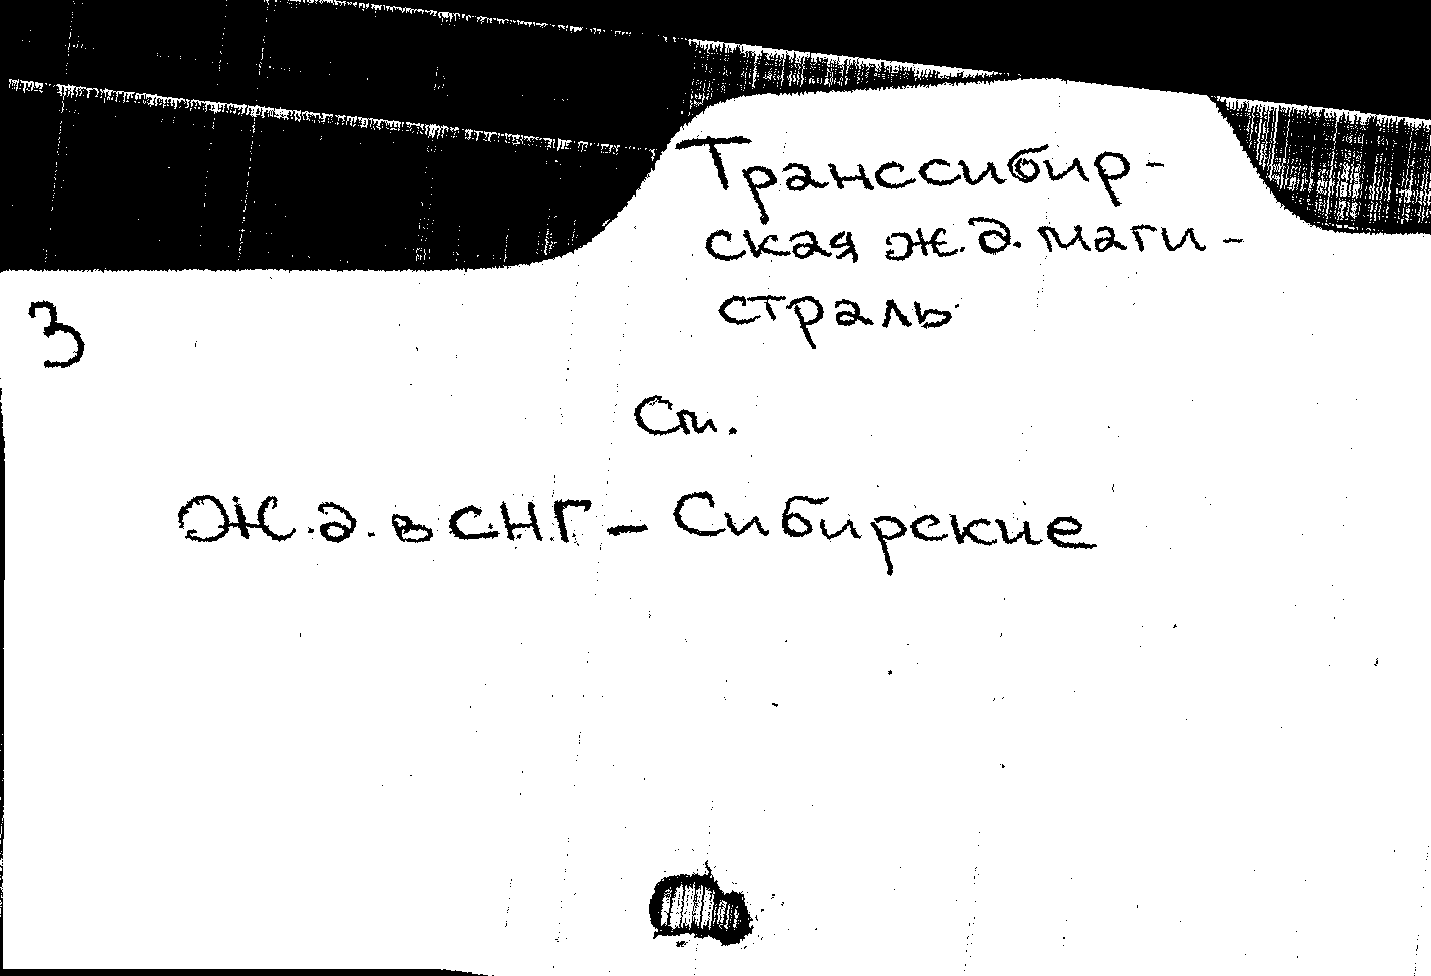 Транссибир-
ская ж.д. маги-
страль
3
См.
Ж.д. в СНГ - Сибирские